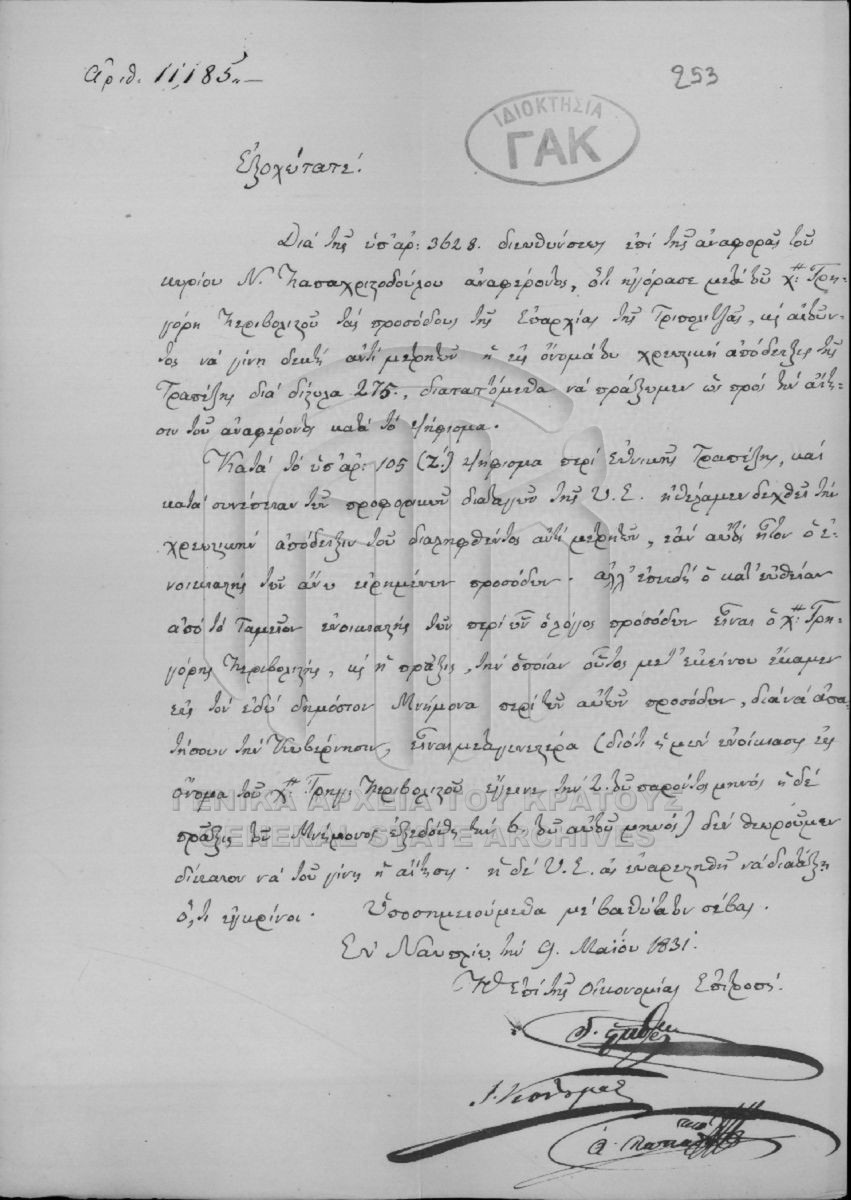 Ἀριθ. 11,185.
253
ΙΔΙΟΚΤΗΣΙΑ
ΓΑΚ
Ἐξοχώτατε!
Διὰ τῆς ὑπ' ἀρ: 3628. διευθύνσεως ἐπὶ τῆς ἀναφορᾶς τοῦ
κυρίου Ν. Παπαχριστοδούλου ἀναφέροντος, ὅτι ἠγόρασε μετὰ τοῦ χ: Γρη-
γόρη Περιβολιστοῦ τὰς προσόδους τῆς Ἐπαρχίας τῆς Τριπολιτζᾶς, κ αἰτοῦν-
τος νὰ γίνῃ δεκτὴ ἀντὶ μετρητῶν ἡ εἰς ὄνομά του χρεωστικὴ ἀπόδειξις τῆς
Τραπέζης διὰ δίστηλα 275., διαταττόμεθα νὰ πράξωμεν ὡς πρὸς τὴν αἴτη-
σιν τοῦ ἀναφέροντος κατὰ τὸ ψήφισμα.
Κατὰ τὸ ὑπ' ἀρ: 105 (Ζ.) ψήφισμα περὶ Ἐθνικῆς Τραπέζης, καὶ
κατὰ συνέπειαν τῶν προφορικῶν διαταγῶν τῆς Υ. Ε. ἠθέλαμεν δεχθῆ τὴν
χρεωστικὴν ἀπόδειξιν τοῦ διαληφθέντος ἀντὶ μετρητῶν, ἐὰν αὐτὸς ἦτον ὁ ἐ-
νοικιαστὴς τῶν ἄνω εἰρημένων προσόδων. ἀλλ' ἐπειδὴ ὁ κατ' εὐθεῖαν
ἀπὸ τὸ Ταμεῖον ἐνοικιαστὴς τῶν περὶ ὧν ὁ λόγος προσόδων εἶναι ὁ χ: Γρη-
γόρης Περιβολιστής, κ ἡ πρᾶξις, τὴν ὁποίαν οὗτος μετ' ἐκείνου ἔκαμεν
εἰς τὸν ἐδῶ δημόσιον Μνήμονα περὶ τῶν αὐτῶν προσόδων, διὰ νὰ ἀπα-
τήσουν τὴν Κυβέρνησιν, εἶναι μεταγενεστέρα (διότι ἡ μὲν ἐνοικίασις εἰς
ὄνομα τοῦ χ: Γρηγ: Περιβολιστοῦ ἔγεινε τὴν 2 τοῦ παρόντος μηνὸς ἡ δὲ
πρᾶξις τοῦ Μνήμονος ἐξεδόθη τὴν 6. τοῦ αὐτοῦ μηνός) δὲν θεωροῦμεν
δίκαιον νὰ τοῦ γίνῃ ἡ αἴτησις. ἡ δὲ Υ. Ε. ἂς εὐαρεστηθῇ νὰ διατάξῃ
ὅ,τι ἐγκρίνει. Ὑποσημειούμεθα μὲ βαθύτατον σέβας.
Ἐν Ναυπλίῳ τὴν 9. Μαΐου 1831.
Ἡ ἐπὶ τῆς Οἰκονομίας Ἐπιτροπή.
ΓΕΝΙΚΑ ΑΡΧΕΙΑ ΤΟΥ ΚΡΑΤΟΥΣ
GENERAL STATE ARCHIVES